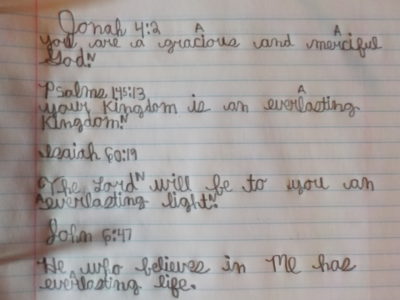 Jonah 4:2
A A
you are a gracious and merciful
God.N
Psalms 145:13
A
your Kingdom is an everlasting
Kingdom.N
Isaiah 60:19
The LordN will be to you an
A everlasting light.N
John 6:47
He who believes in Me has
A
everlasting life.